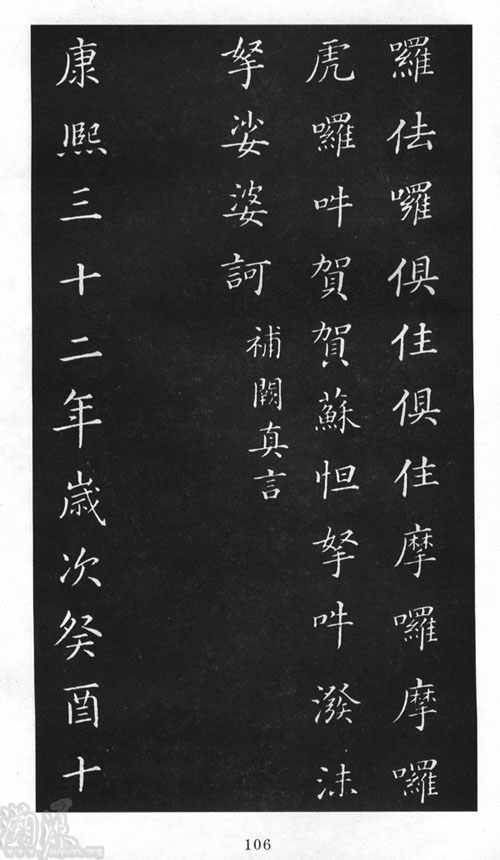 囉佉囉俱住俱住摩囉摩囉
虎囉吽賀賀蘇怛拏吽潑沫
拏娑婆訶 補闕真言
康熙三十二年歲次癸酉十
106